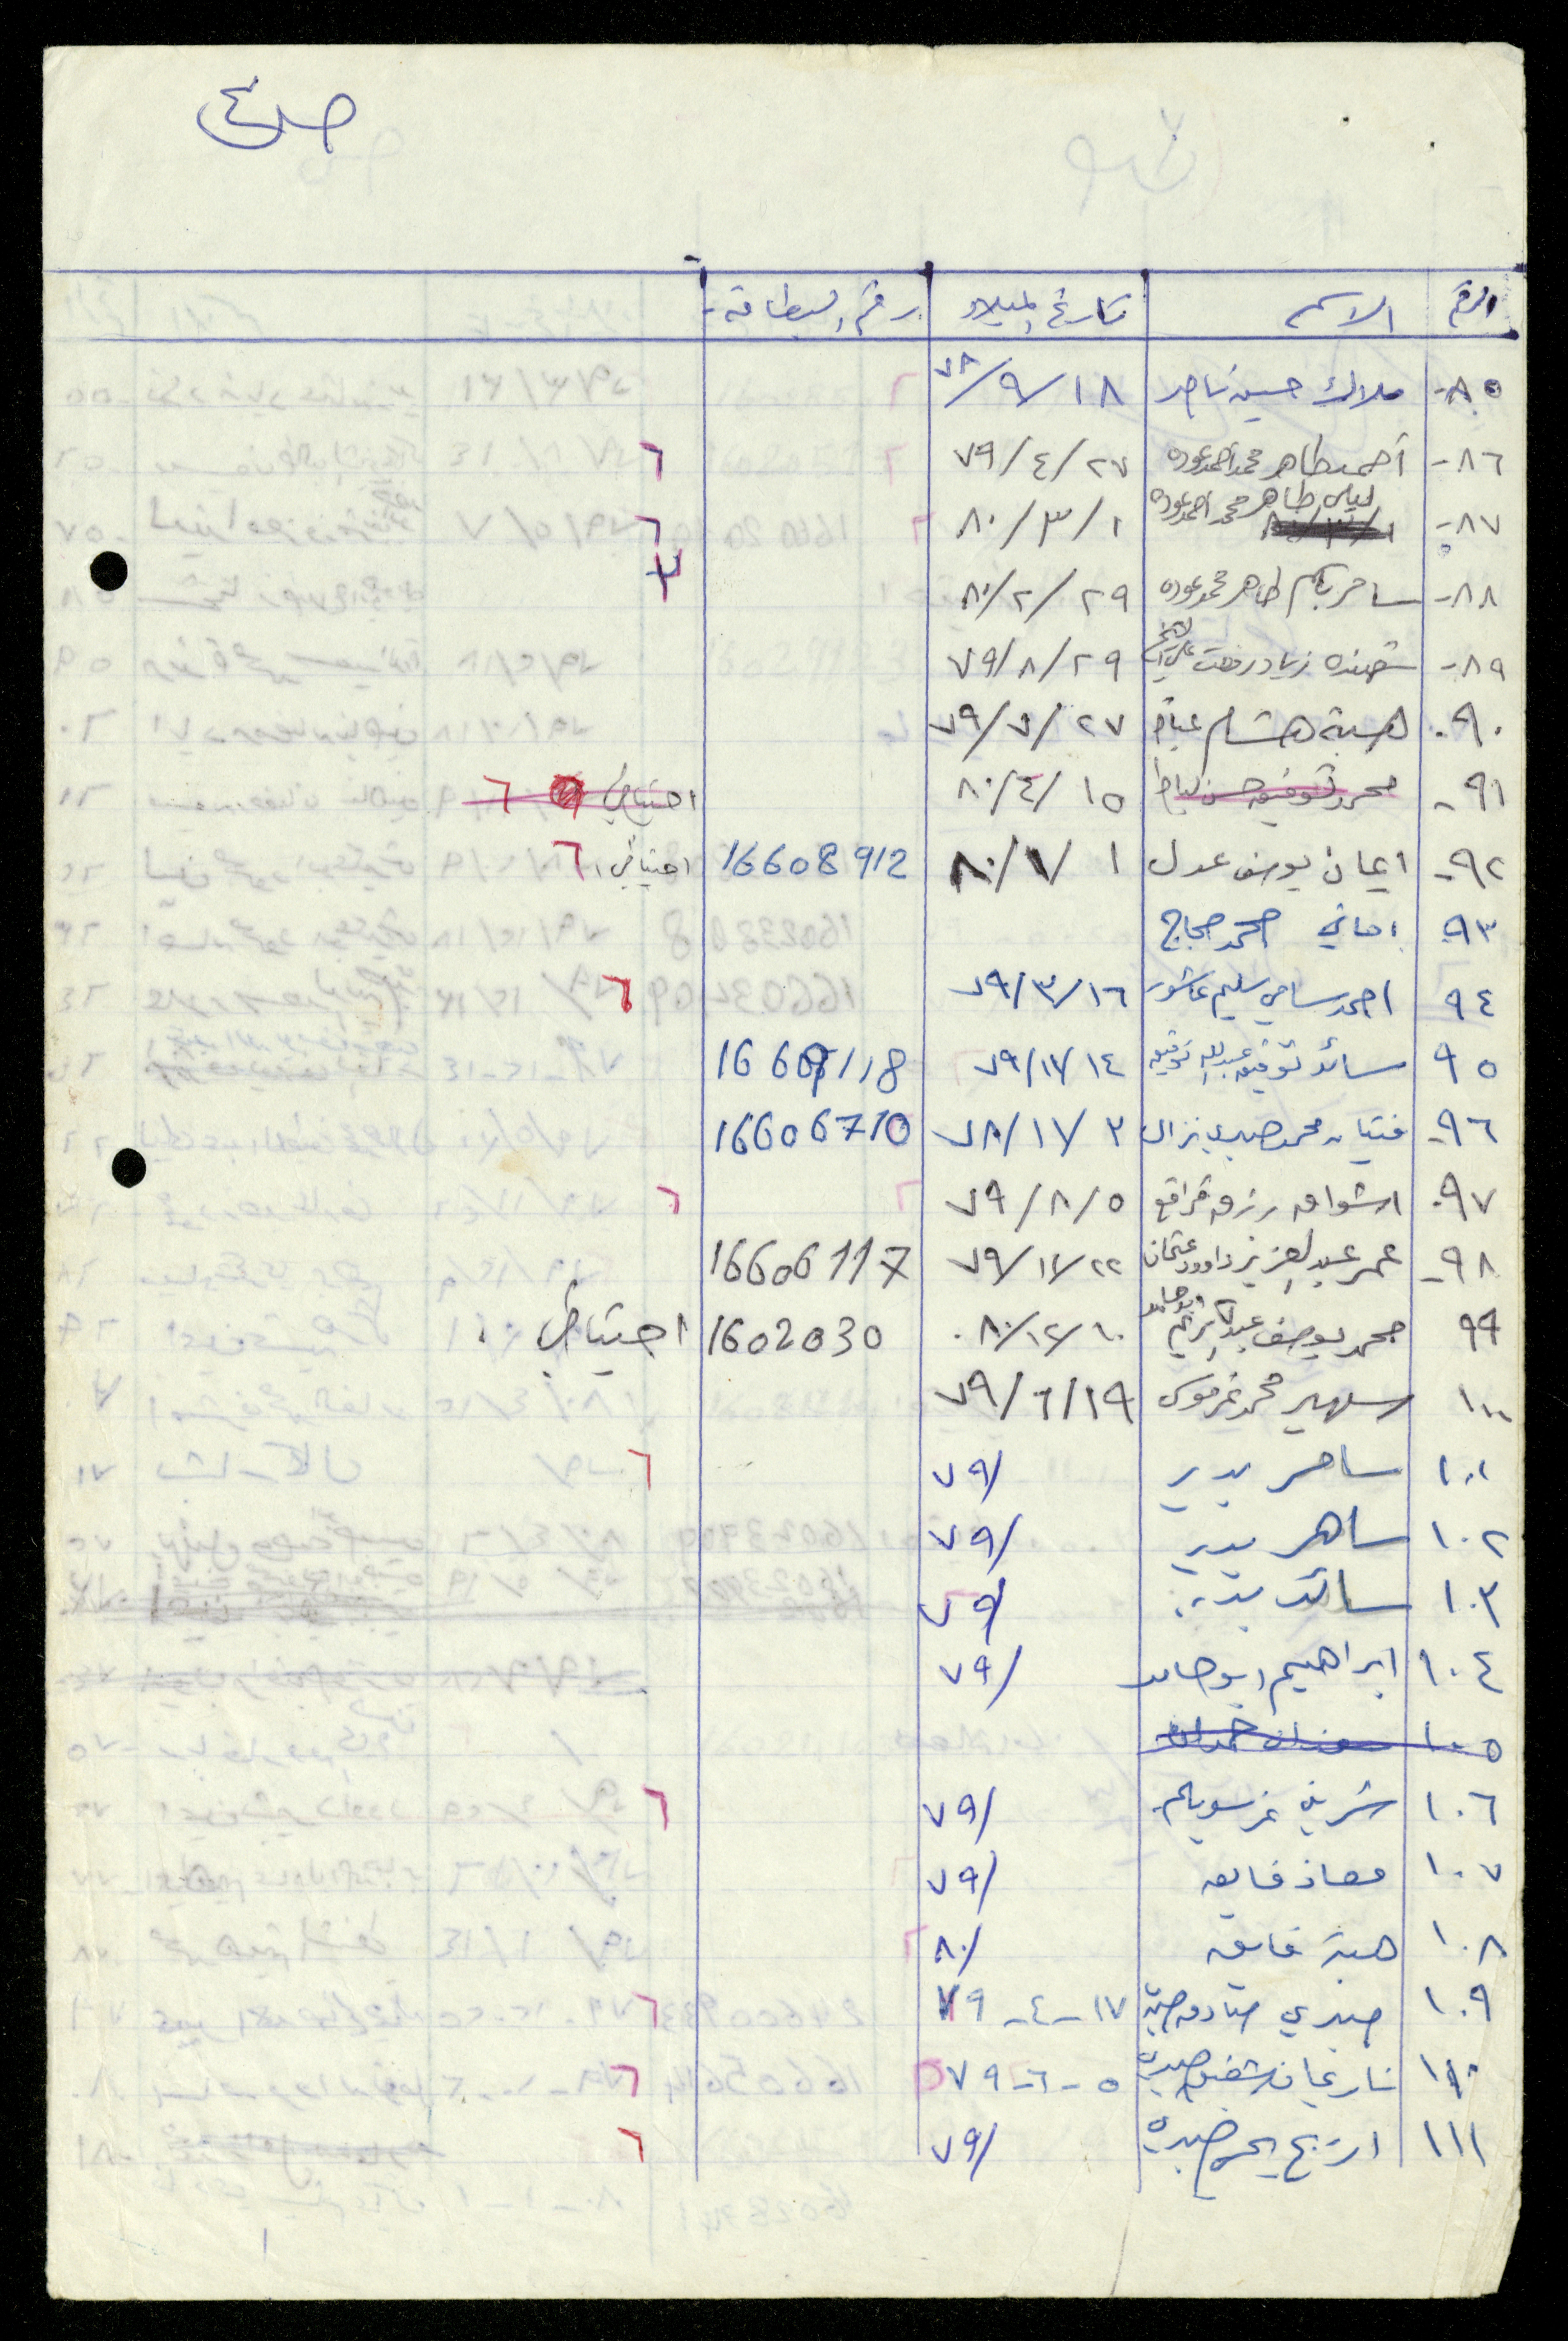 ص ٤
الرقم الاسم تاريخ الميلاد رقم البطاقة
٨٥- ملاك حسين ناصر ٧٨/٩/١٨
٨٦- أحمد طاهر محمد احمد عوده ٧٩/٤/٢٧ ٦
٨٧- ليلى طاهر محمد احمد عوده ٨٠/٣/١ ٦
٨٨- سامر باسم طاهر محمد عوده ٨٠/٢/٢٩
٨٩- زياد رفعت علي ٧٩/٨/٢٩
٩٠- هبة هشام ٧٩/٧/٢٧
٩١- محمد توفيق حسن ٨٠/٤/١٥ احتياطي ٦
٩٢- ايمان يوسف عدل ٨٠/١/١ 16608912 احتياطي ٦
٩٣- اماني محمد حجاج
٩٤ احمد سامي سليم عاشور ٧٩/٣/١٦ ٦
٩٥ سائد توفيق عبد الله ٧٩/١٢/١٤
٩٦- محمد صبري نزال ٧٨/١٢/٣ 16606710
٩٧- اشواق رزق ٧٩/٨/٥ ٦
٩٨- عمر عبد العزيز داوود عثمان ٧٩/١٢/٢٢ 16606117
٩٩ محمد يوسف عبد الكريم ابو حامد ٨٠/١٢/١٠ 1602030 احتياطي
١٠٠ سهير محمد ٧٩/٦/١٩
١٠١ سامر بدير ٧٩/ ٦
١٠٢ ساهر بدير ٧٩/
١٠٣ سائد بدير ٧٩/
١٠٤ ابراهيم ابو حامد ٧٩/
١٠٥
١٠٦ شرين ٧٩/ ٦
١٠٧ معاذ فايق ٧٩/
١٠٨ هبة فايق ٨٠/
١٠٩ صبري صادق ١٧-٤-٧٩ ٦
١١٠ ناريمان شفيق صبره ٥-٦-٧٩ ٦
١١١ اريج صبره ٧٩/ ٦